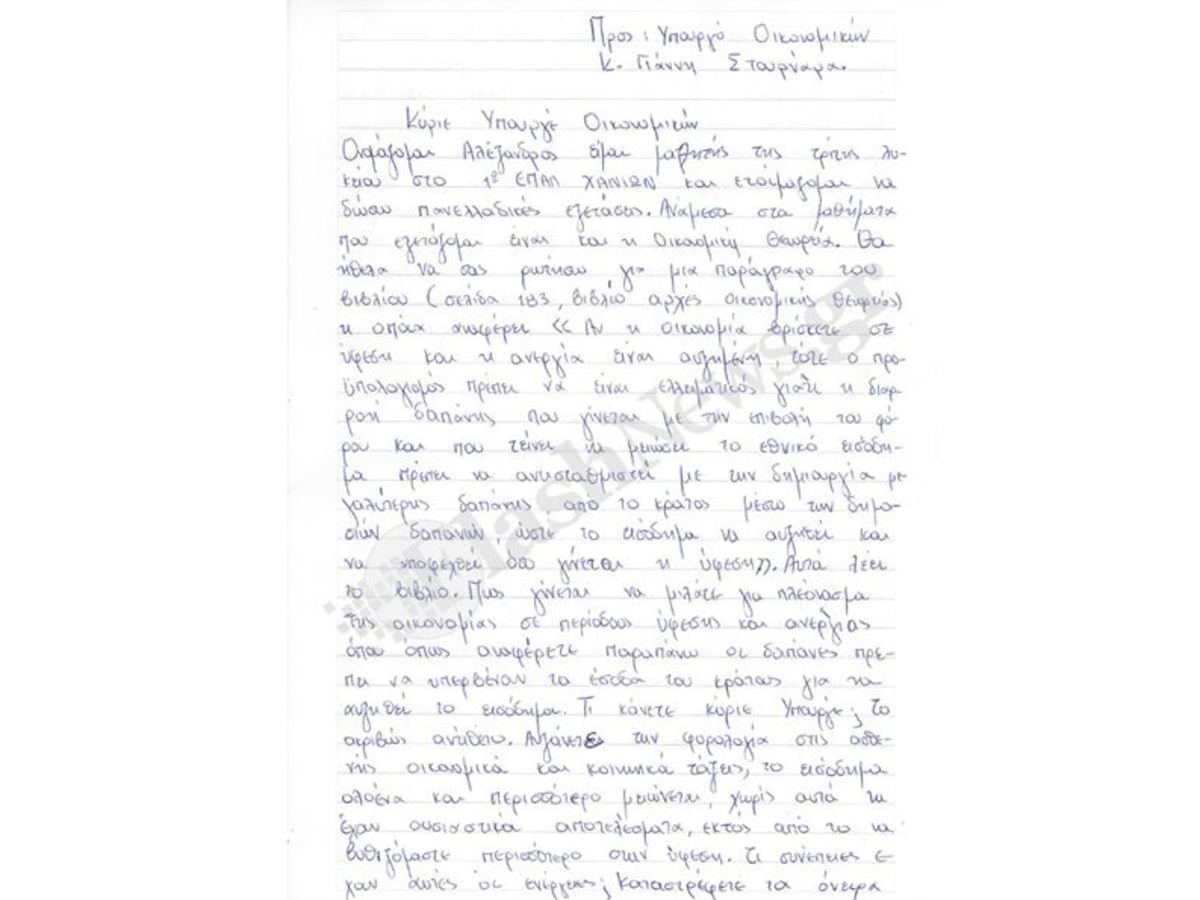 Προς: Υπουργό Οικονομικών
Κ. Γιάννη Στουρνάρα.
Κύριε Υπουργέ Οικονομικών
Ονομάζομαι Αλέξανδρος είμαι μαθητής της τρίτης λυ-
κείου στο 1º ΕΠΑΛ ΧΑΝΙΩΝ και ετοιμάζομαι να
δώσω πανελλαδικές εξετάσεις. Ανάμεσα στα μαθήματα
που εξετάζομαι είναι και η Οικονομική Θεωρία. Θα
ήθελα να σας ρωτήσω για μια παράγραφο του
βιβλίου (σελίδα 183, βιβλίο αρχές οικονομικής θεωρίας)
η οποία αναφέρει << Αν η οικονομία βρίσκετε σε
ύφεση και η ανεργία είναι αυξημένη, τότε ο προ-
ϋπολογισμός πρέπει να είναι ελλειματικός γιατί η διαρ-
ροή δαπάνης που γίνεται με την επιβολή του φό-
ρου και που τείνει να μειώσει το εθνικό εισόδη-
μα πρέπει να αντισταθμιστεί με την δημιουργία με-
γαλύτερης δαπάνης από το κράτος μέσω των δημο-
σιών δαπανών, ώστε το εισόδημα να αυξηθεί και
να αποφευχθεί όσο γίνεται η ύφεση>>. Αυτά λέει
το βιβλίο. Πως γίνεται να μιλάτε για πλεόνασμα
της οικονομίας σε περίοδους ύφεσης και ανεργίας
όπου όπως αναφέρετε παραπάνω οι δαπάνες πρέ-
πει να υπερβέναν τα έσοδα του κράτους για να
αυξηθεί το εισόδημα. Τι κάνετε κύριε Υπουργέ; Το
ακριβώς αντίθετο. Αυξάνετε την φορολογία στις ασθε-
νής οικονομικά και κοινωνικά τάξεις, το εισόδημα
ολοένα και περισσότερο μειώνεται, χωρίς αυτά να
έχουν ουσιαστικά αποτελέσματα, εκτός από το να
βυθιζόμαστε περισσότερο στην ύφεση. Τι συνέπειες έ-
χουν αυτές οι ενέργειες; Καταστρέφετε τα όνειρα
FlashNews.gr